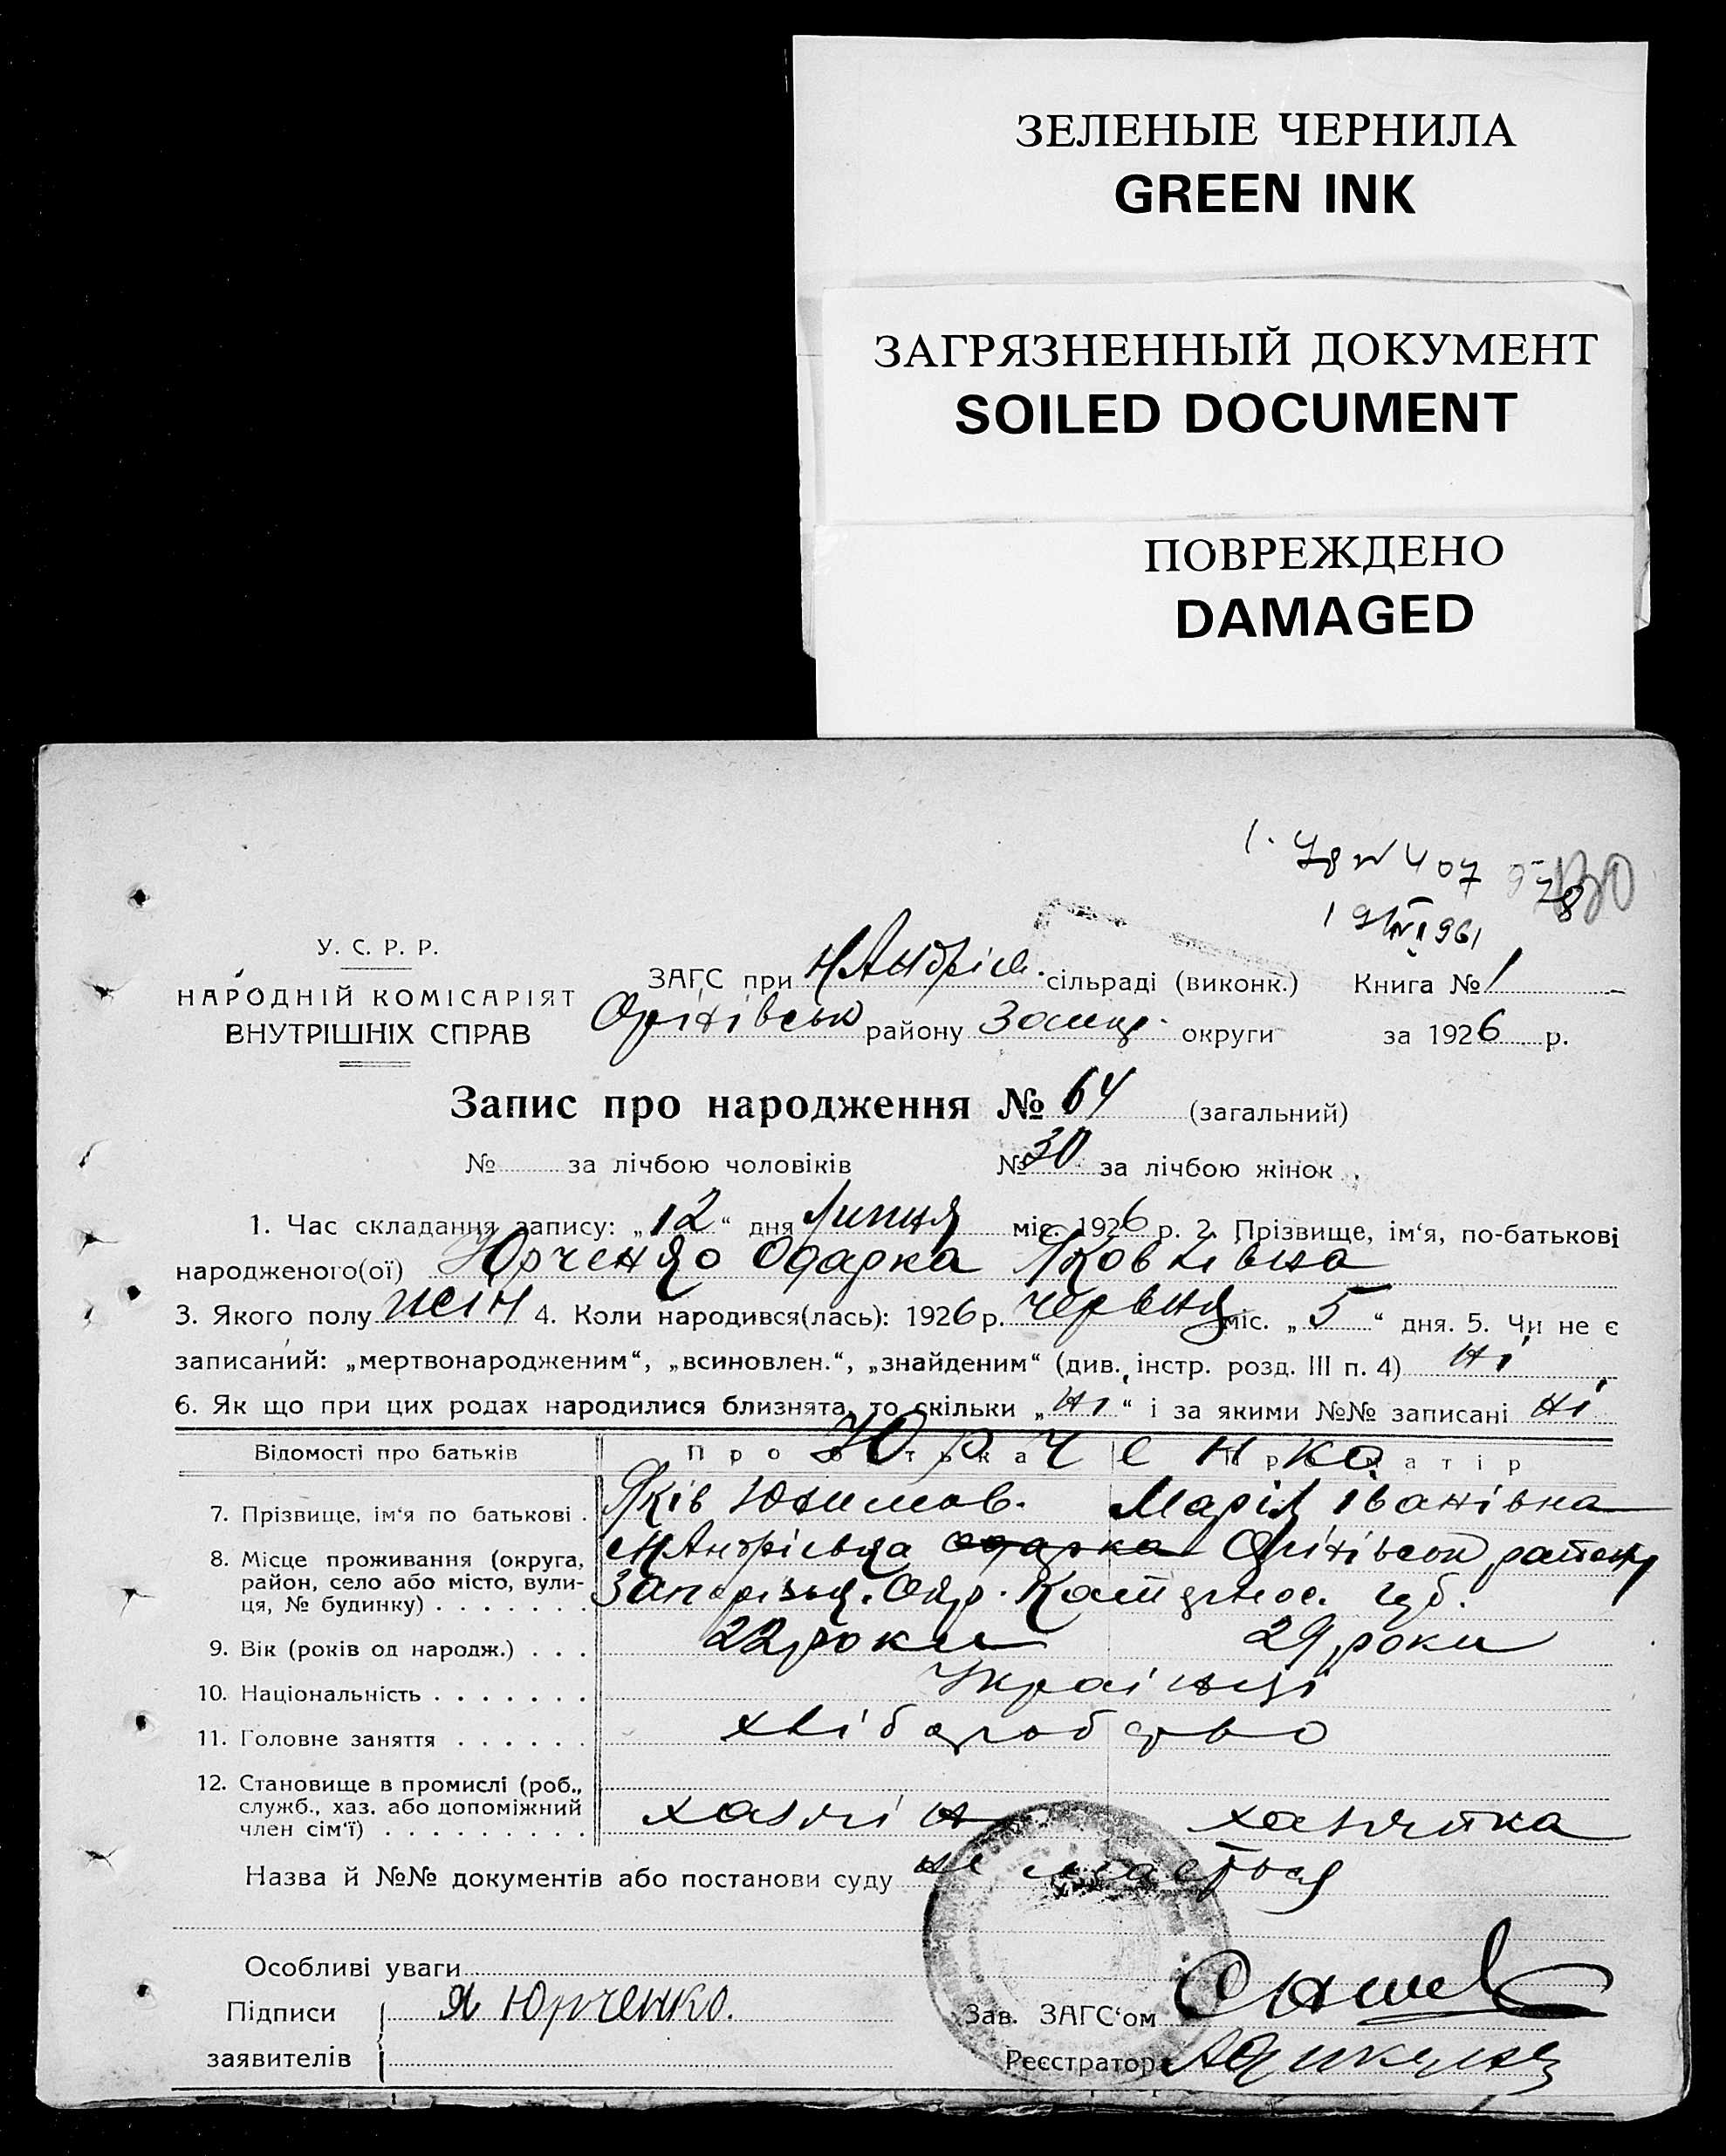 ЗЕЛЕНЫЕ ЧЕРНИЛА
GREEN INK
ЗАГРЯЗНЕННЫЙ ДОКУМЕНТ
SOILED DOCUMENT
ПОВРЕЖДЕНО
DAMAGED
У. С. Р. Р.
НАРОДНІЙ КОМІСАРІЯТ
ВНУТРІШНІХ СПРАВ
ЗАГС при Н Андрієв. сільраді (виконк.) Книга № 1
Оріхівськ району Запор. округи за 1926 р.
Запис про народження № 64 (загальний)
№ за лічбою чоловіків № 30 за лічбою жінок
1. Час складання запису: „12“ дня Липня міс. 1926 р. 2. Прізвище, ім‘я, по-батькові
народженого(ої) Юрченко Одарка Яковлівна
3. Якого полу жін 4. Коли народився(лась): 1926 р. червня міс. „5“ дня. 5. Чи не є
записаний: „мертвонародженим“, „всиновлен.“, „знайденим“ (див. інстр. розд. III п. 4) ні
6. Як що при цих родах народилися близнята, то скільки „ні“ і за якими №№ записані ні
Відомості про батьків Про батька Про матір
Юрченко
7. Прізвище, ім‘я по батькові . Яків Юхимов. Марія Іванівна
8. Місце проживання (округа, Оріхівськ району
район, село або місто, вули-
ця, № будинку) . . . . . . . Запорізьк. Окр. губ.
9. Вік (років од народж.) . . . 22 роки 29 роки
10. Національність . . . . . . . Українці
11. Головне заняття . . . . . . хліборобство
12. Становище в промислі (роб.,
служб., хаз. або допоміжний
член сім‘ї) . . . . . . . . . хазяїн хазяйка
Назва й №№ документів або постанови суду не мається
Особливі уваги
Підписи Я Юрченко. Зав. ЗАГС‘ом
заявителів Реєстратор